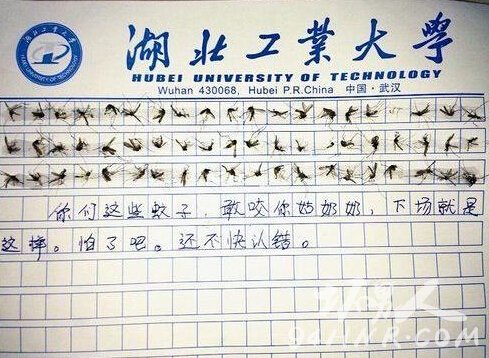 湖北工業大學
HUBEI UNIVERSITY OF TECHNOLOGY
Wuhan 430068, Hubei P.R.China 中国·武汉
你们这些蚊子,敢咬你姑奶奶,下场就是
这样。怕了吧。还不快认错。